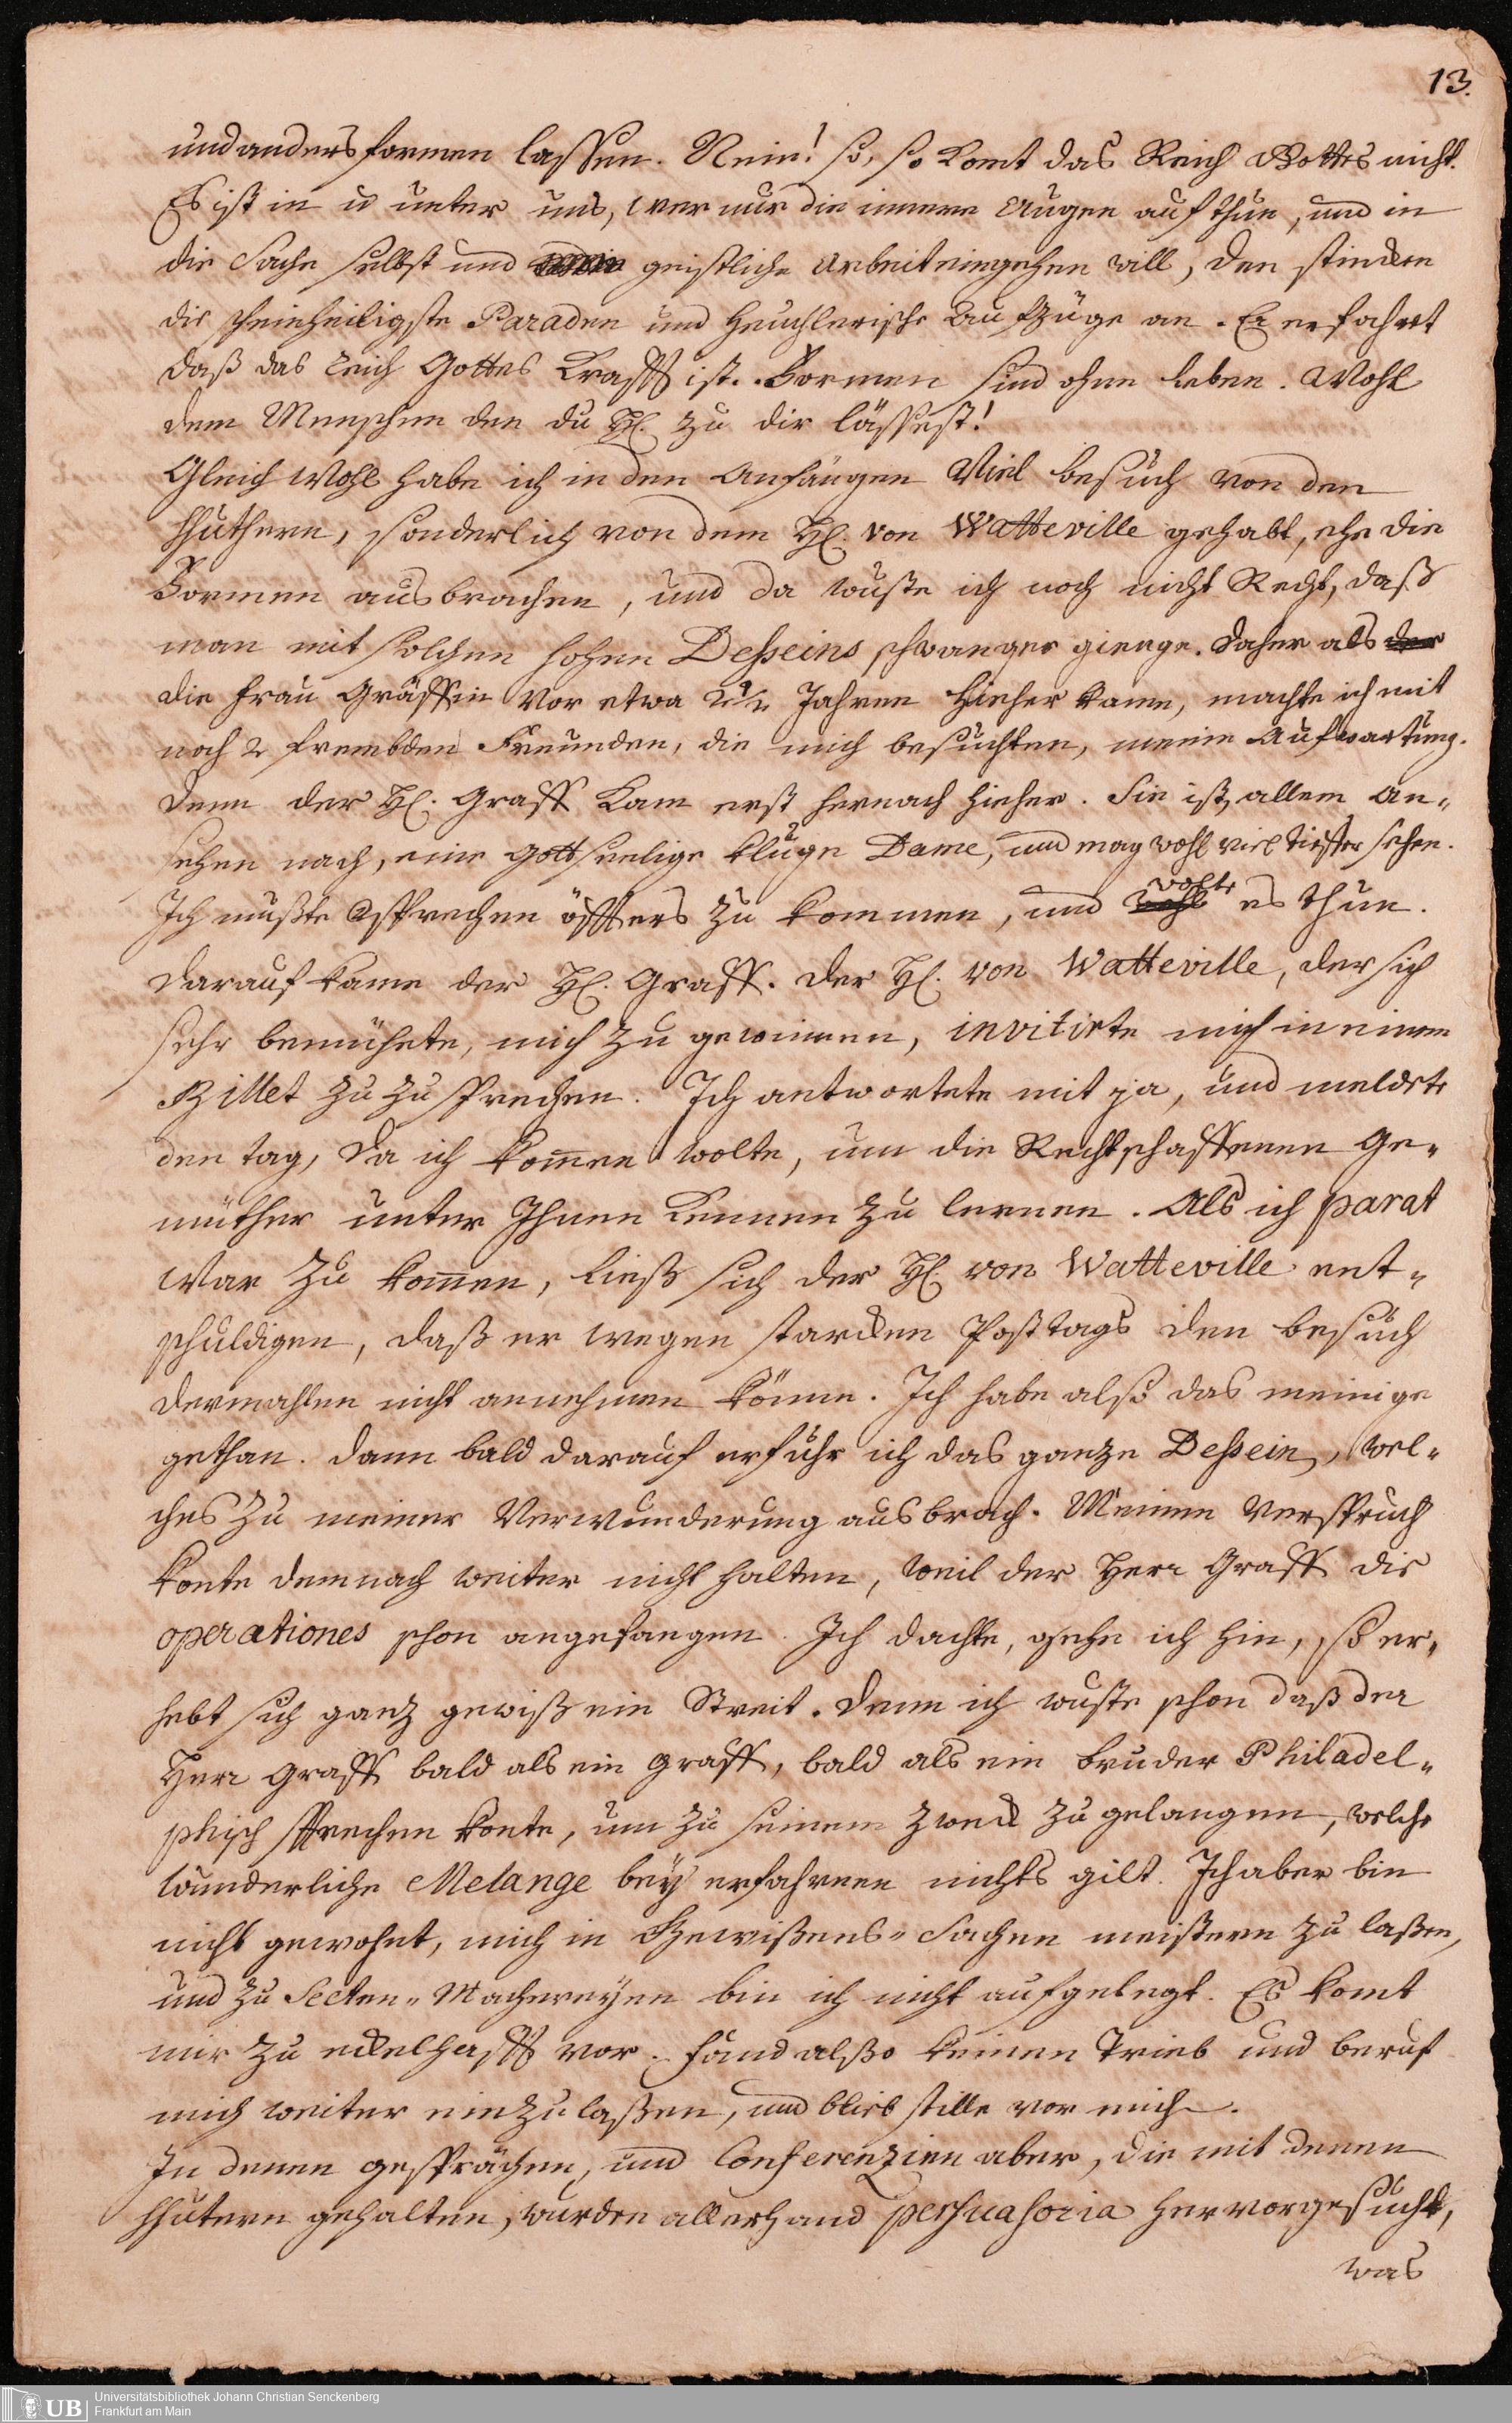 13.
und anders formen lassen. Nein! so, so komt das Reich Gottes nicht.
Es ist in u unter uns, wer nur die innere Augen aufthun, und in
die Sache selbst und geistliche Arbeit eingehen will, den stincken
die scheinheiligste Paraden und heuchlerische Aufzüge an. Er erfahret
daß das Reich Gottes Krafft ist. Formen sind ohne leben. Wohl
dem Menschen den du H. zu dir lässest!
Gleichwohl habe ich in den Anfängen Viel besuch von den
HHuthern, sonderlich von dem H. von Watteville gehabt, ehe die
Formen ausbrachen, und da wuste ich noch nicht Recht, daß
man mit solchen hohen Desseins schwanger gienge. Daher als der
die Frau Gräffin vor etwa 2 1/2 Jahren hieher kame, machte ich mit
noch 2 frembden Freunden, die mich besuchten, meine Aufwartung.
Denn der H. Graff kam erst hernach hieher. Sie ist, allem An-
sehen nach, eine gottseelige kluge Dame, und mag wohl viel tieffer sehen.
Ich mußte versprechen öffters zu kommen, und wolte es thun.
Darauf kame der H. Graff. Der H. von Watteville, der sich
sehr bemühete, mich zu gewinnen, invitirte mich in einem
Billet zu zu sprechen. Ich antwortete mit ja, und meldete
den tag, da ich kom̄en wolte, um die Rechtschaffenen Ge-
müther unter Ihnen kennen zu lernen. Als ich parat
war zu kom̄en, ließ sich der H. von Watteville ent-
schuldigen, daß er wegen starcken Posttags den besuch
dermahlen nicht annehmen könne. Ich habe also das meinige
gethan. Dann bald darauf erfuhr ich das ganze Dessein, wel-
ches zu meiner Verwunderung ausbrach. Meinen Verspruch
konte demnach weiter nicht halten, weil der Herr Graff die
operationes schon angefangen. Ich dachte, gehe ich hin, so er-
hebt sich ganz gewiß ein Streit. Denn ich wuste schon daß der
Herr Graff bald als ein Graff, bald als ein bruder Philadel-
phisch sprechen konte, um zu seinem Zweck zu gelangen, welche
wunderliche Melange bey erfahrnen nichts gilt. Ich aber bin
nicht gewohnt, mich in Gewißens-Sachen meistern zu laßen,
und zu Secten-Machereyen bin ich nicht aufgelegt. Es komt
mir zu eckelhafft vor. Fand also keinen Trieb und beruf
mich weiter einzulaßen, und blieb stille vor mich.
In denen gesprächen, und Conferenzien aber, die mit denen
HHutern gehalten, wurden allerhand persuasoria hervorgesucht,
was
UB
Universitätsbibliothek Johann Christian Senckenberg
Frankfurt am Main